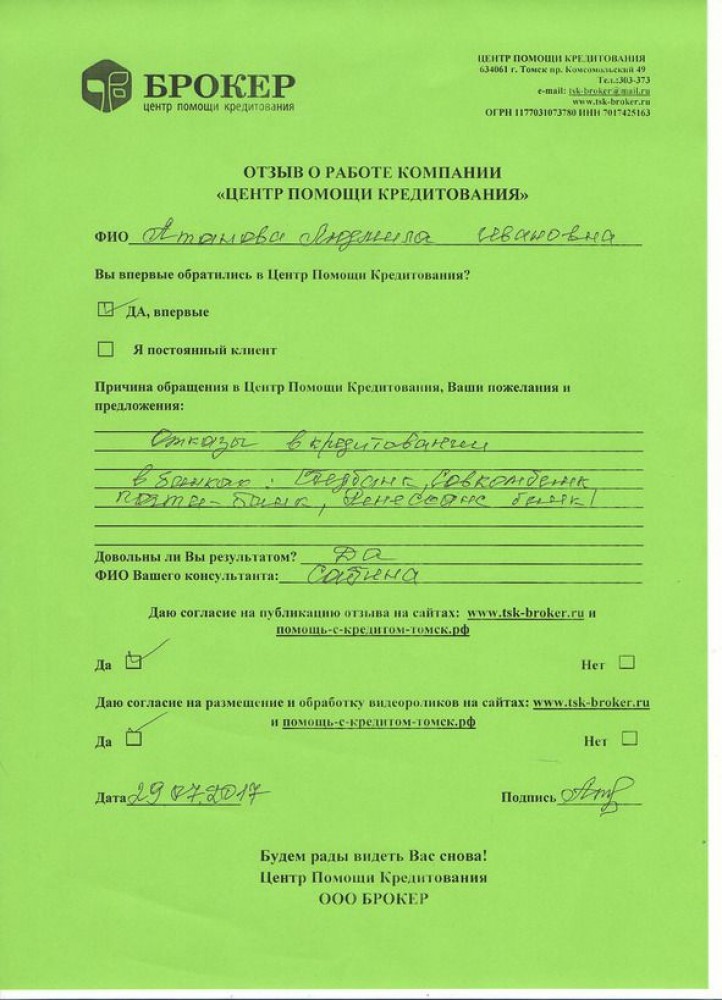 БРОКЕР
центр помощи кредитования
ЦЕНТР ПОМОЩИ КРЕДИТОВАНИЯ
634061 г. Томск пр. Комсомольский 49
Тел.:303-373
e-mail: tsk-broker@mail.ru
www.tsk-broker.ru
ОГРН 1177031073780 ИНН 7017425163
ОТЗЫВ О РАБОТЕ КОМПАНИИ
«ЦЕНТР ПОМОЩИ КРЕДИТОВАНИЯ»
ФИО Атанова Людмила Ивановна
Вы впервые обратились в Центр Помощи Кредитования?
ДА, впервые
Я постоянный клиент
Причина обращения в Центр Помощи Кредитования, Ваши пожелания и
предложения:
Отказы в кредитовании
в банках: Сбербанк, Совкомбанк
почта-банк, Ренессанс банк!
Довольны ли Вы результатом? Да
ФИО Вашего консультанта: Сабина
Даю согласие на публикацию отзыва на сайтах: www.tsk-broker.ru и
помощь-с-кредитом-томск.рф
Да Нет
Даю согласие на размещение и обработку видеороликов на сайтах: www.tsk-broker.ru
и помощь-с-кредитом-томск.рф
Да Нет
Дата 29.07.2017 Подпись
Будем рады видеть Вас снова!
Центр Помощи Кредитования
ООО БРОКЕР